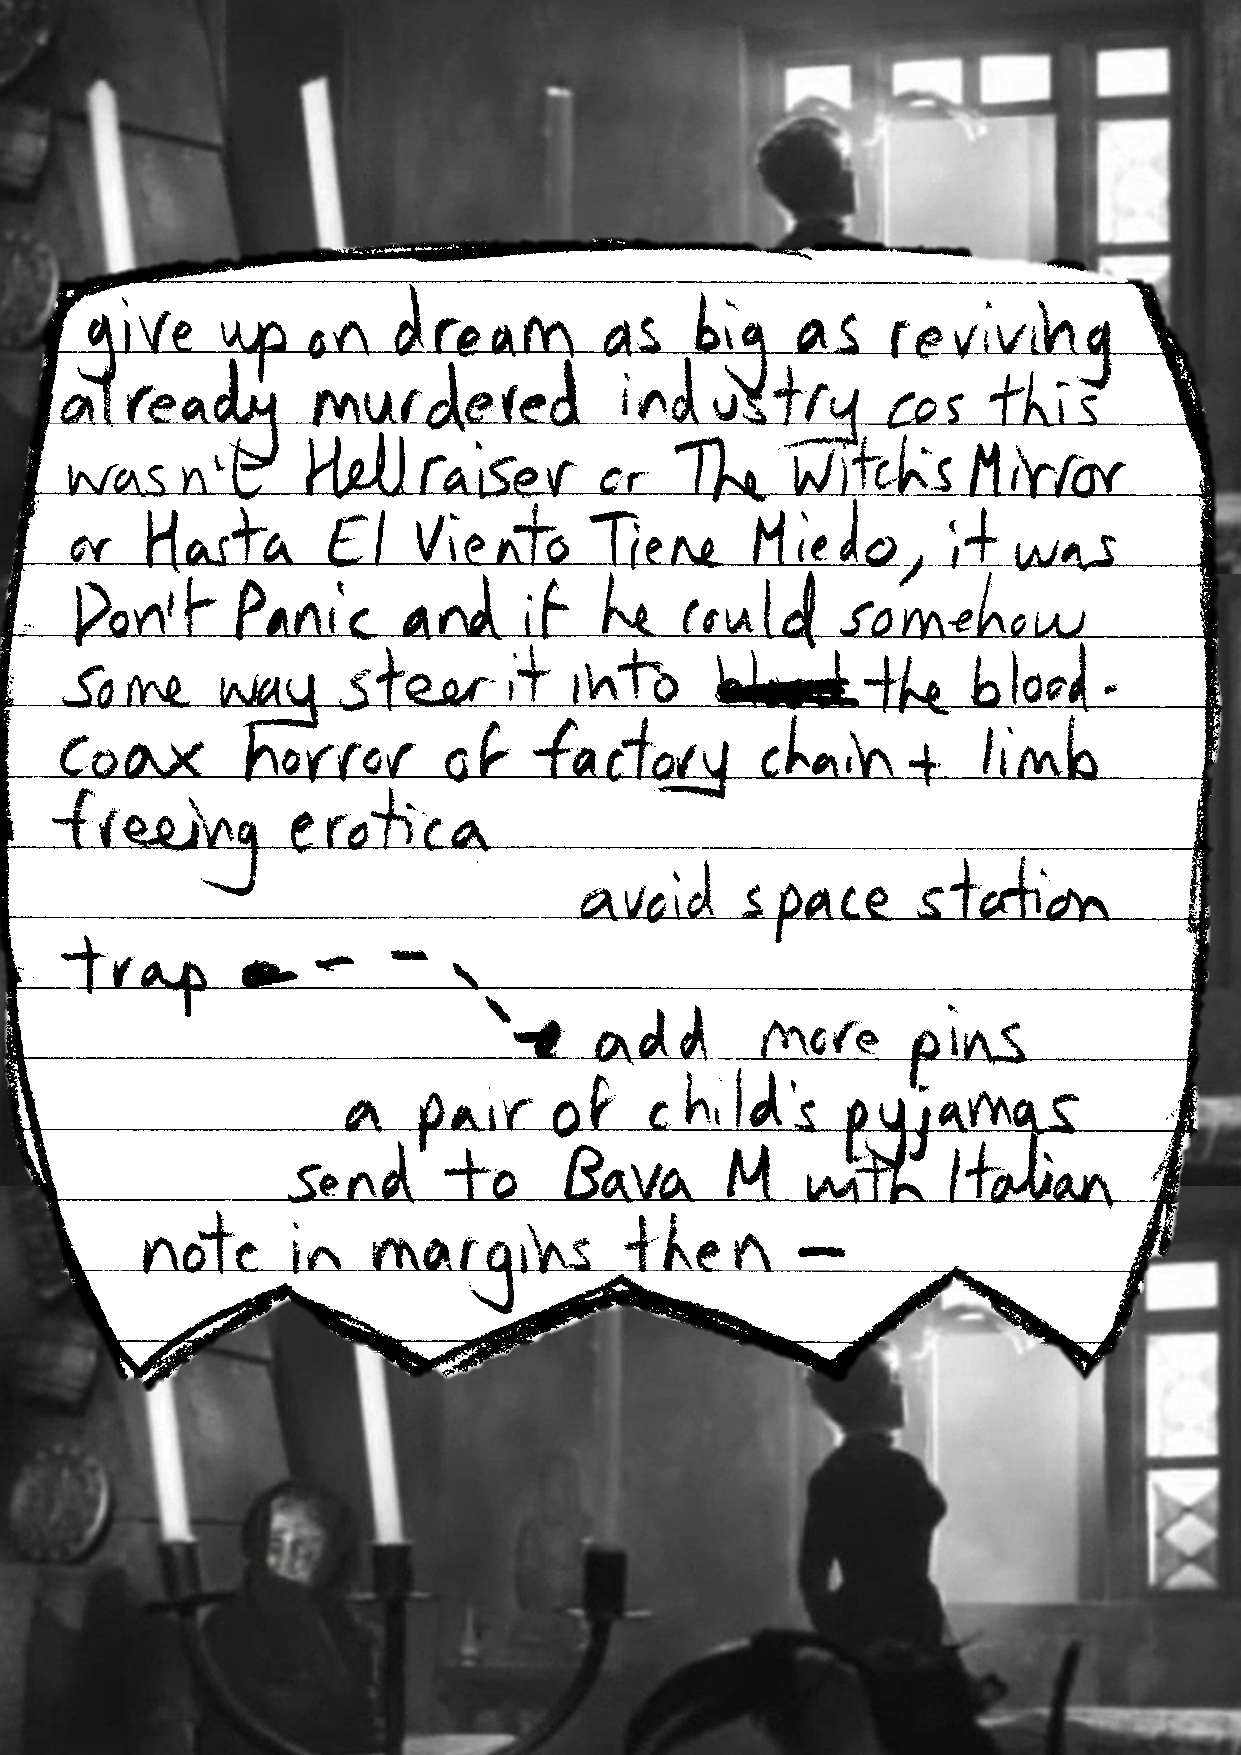 give up on dream as big as reviving
already murdered industry cos this
wasn't Hellraiser or The Witch's Mirror
or Hasta El Viento Tiene Miedo, it was
Don't Panic and if he could somehow
some way steer it into the blood.
coax horror of factory chain + limb
freeing erotica
avoid space station
trap
add more pins
a pair of child's pyjamas
send to Bava M with Italian
note in margins then —